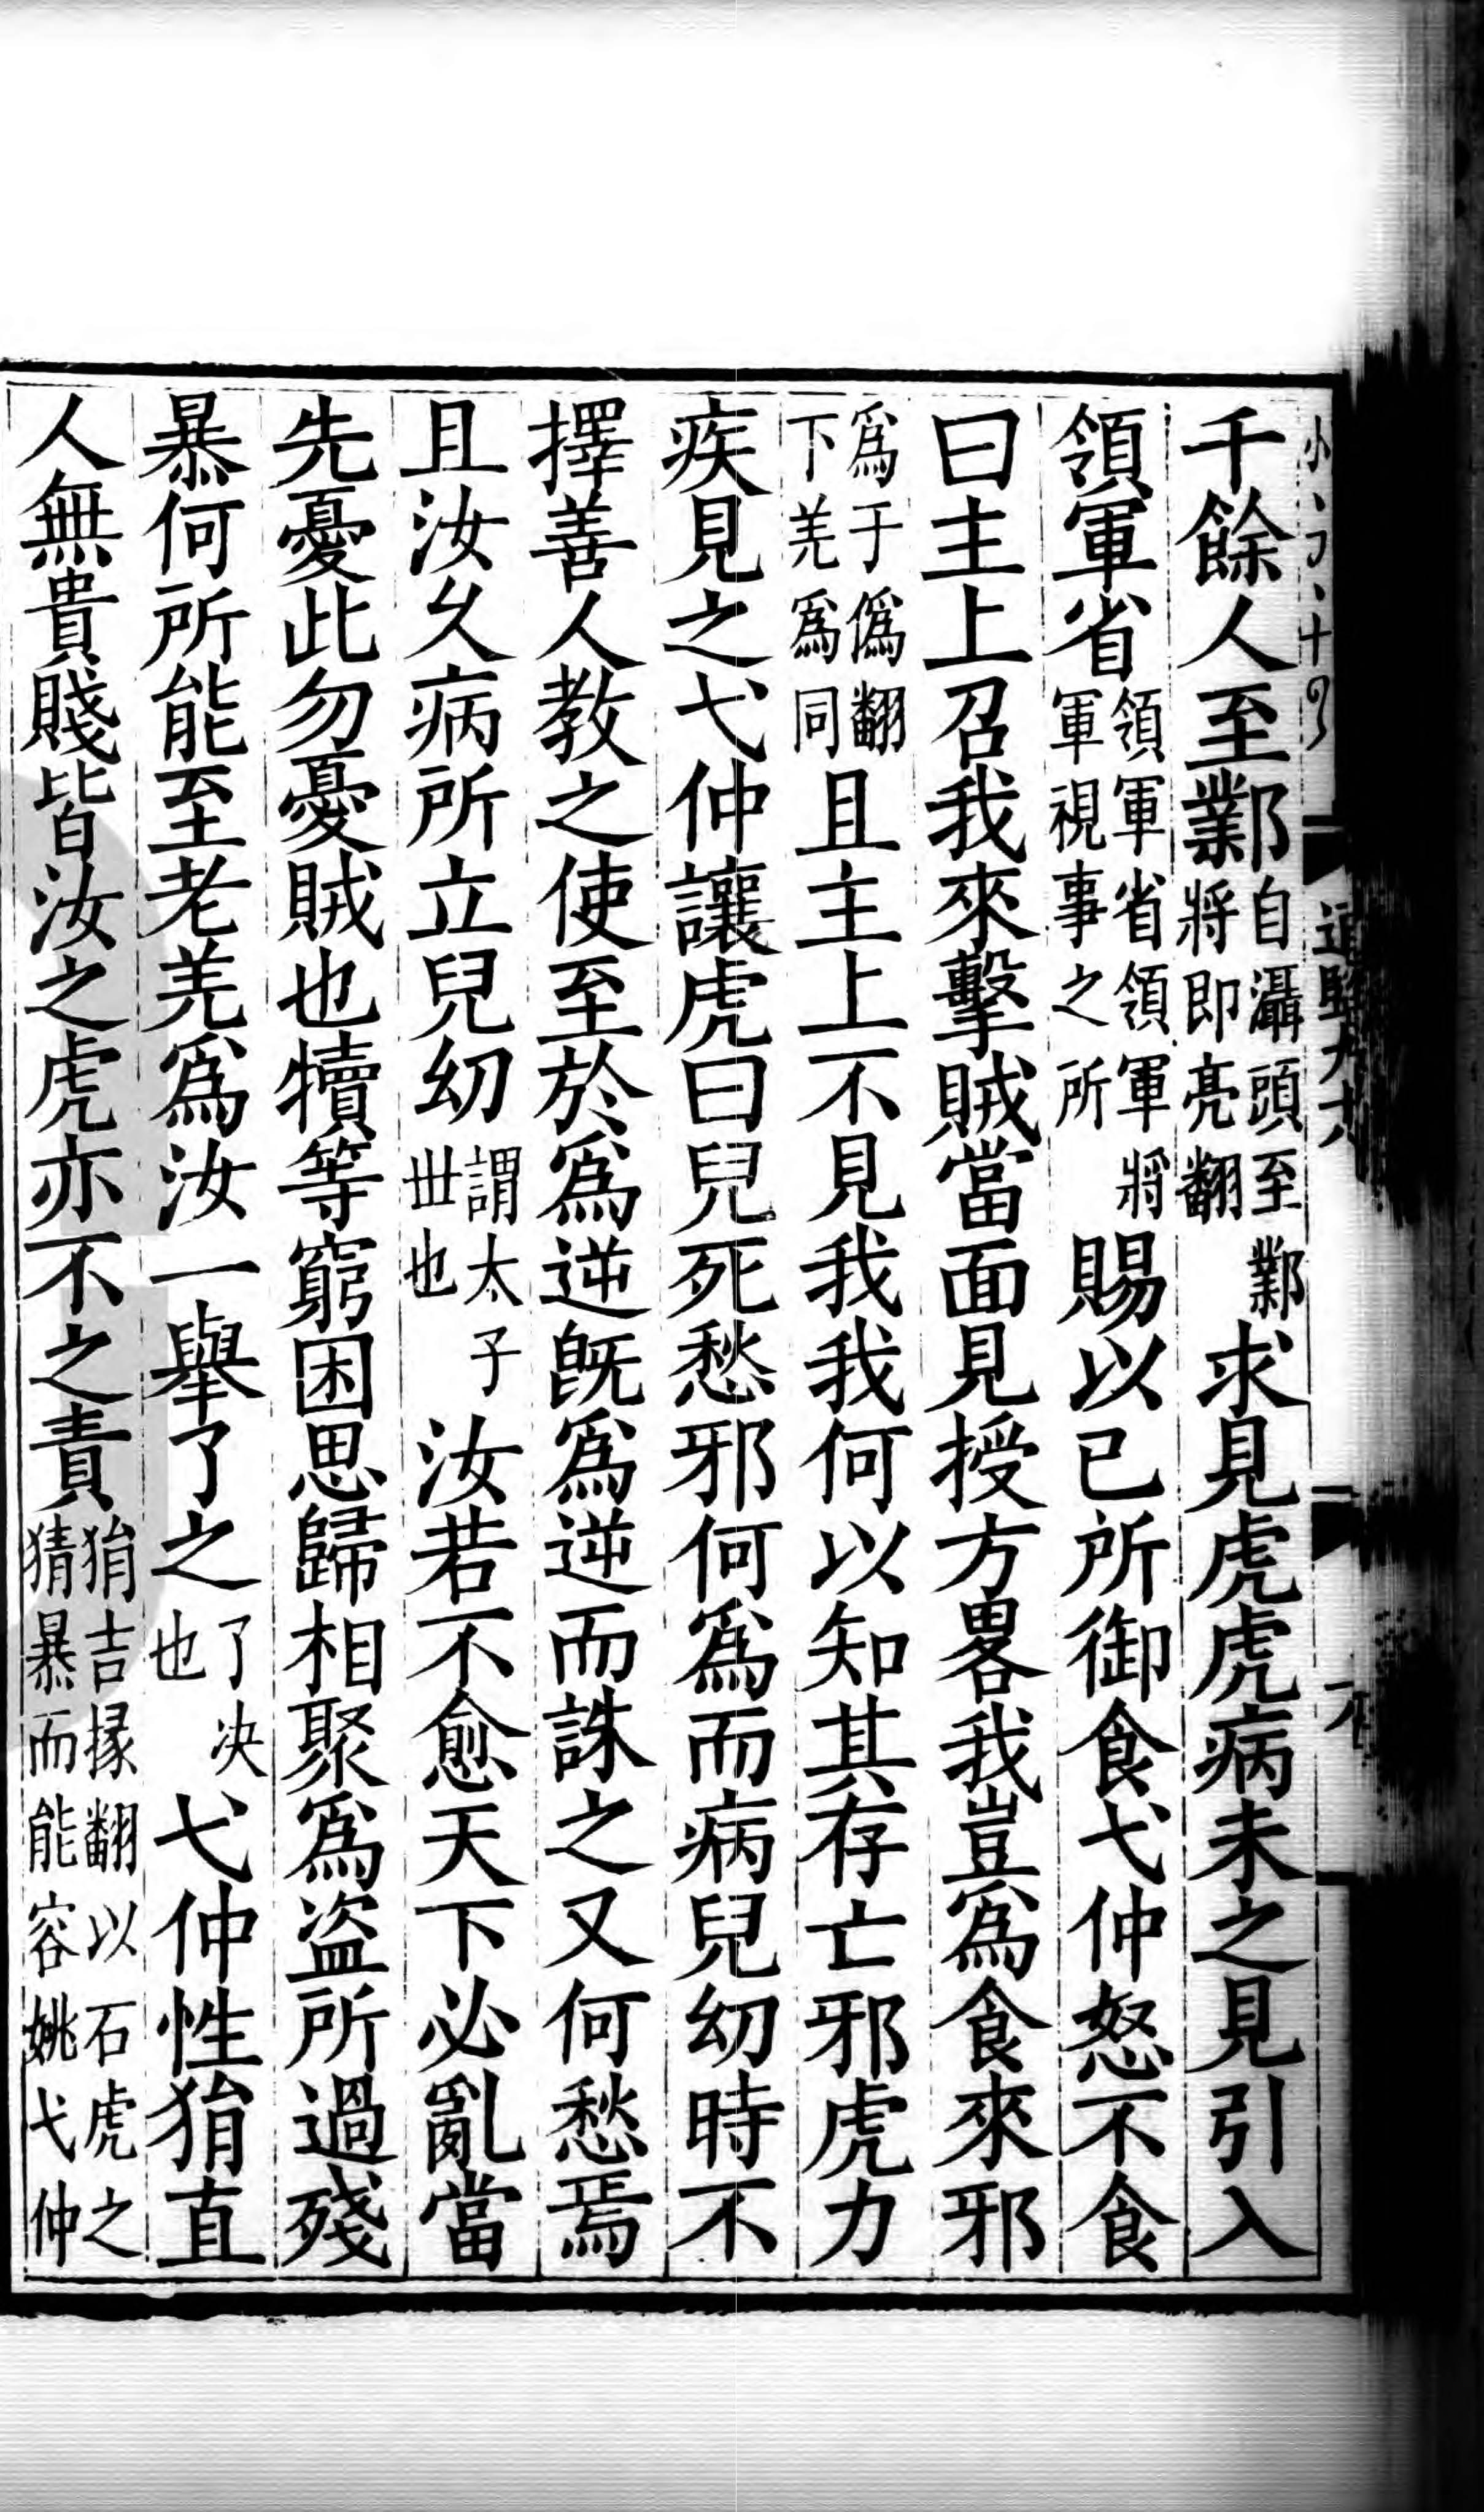 千餘人至鄴自灄頭至鄴將即亮翻求見虎虎病未之見引入
領軍省領軍省領軍將軍視事之所賜以已所御食弋仲怒不食
曰主上召我來擊賊當面見授方畧我豈爲食來邪
爲于僞翻下羌爲同且主上不見我我何以知其存亡邪虎力
疾見之弋仲讓虎曰兒死愁邪何爲而病兒幼時不
擇善人教之使至於爲逆旣爲逆而誅之又何愁焉
且汝久病所立兒幼謂太子丗也汝若不愈天下必亂當
先憂此勿憂賊也犢等窮困思歸相聚爲盜所過殘
暴何所能至老羌爲汝一舉了之了决也弋仲性狷直
人無貴賤皆汝之虎亦不之責狷吉掾翻以石虎之猜暴而能容姚弋仲